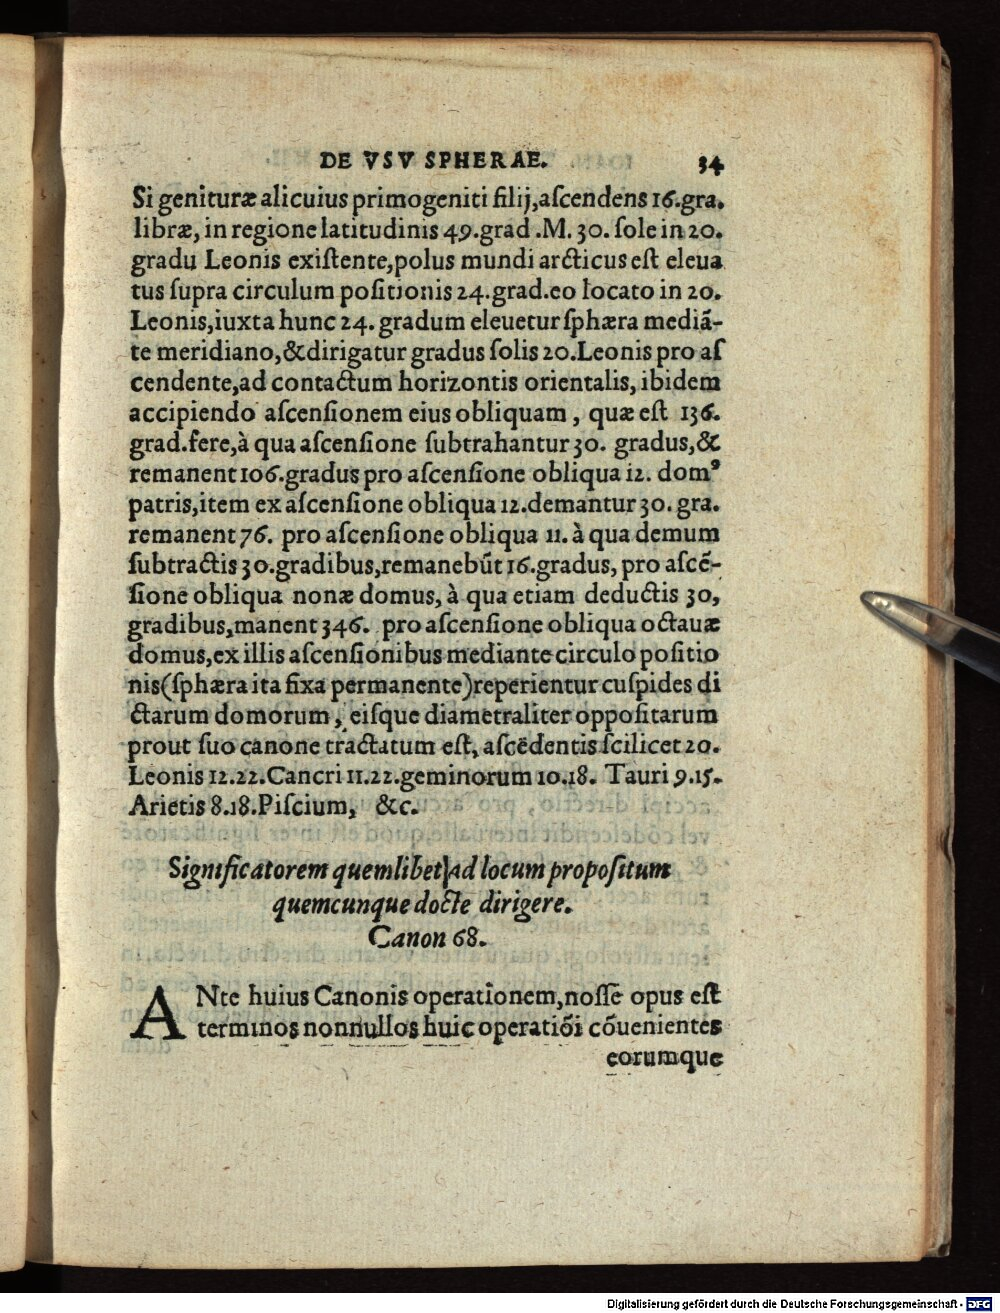 DE VSV SPHERAE. 34
Si genituræ alicuius primogeniti filij,aſcendens 16.gra.
libræ, in regione latitudinis 49.grad .M. 30. ſole in 20.
gradu Leonis exiſtente,polus mundi arcticus eſt eleua
tus ſupra circulum poſitionis 24.grad.eo locato in 20.
Leonis,iuxta hunc 24. gradum eleuetur ſphæra mediã-
te meridiano,&dirigatur gradus ſolis 20.Leonis pro aſ
cendente,ad contactum horizontis orientalis, ibidem
accipiendo aſcenſionem eius obliquam , quæ eſt 136.
grad.fere,à qua aſcenſione ſubtrahantur 30. gradus,&
remanent 106.gradus pro aſcenſione obliqua 12. domꝰ
patris,item ex aſcenſione obliqua 12.demantur 30. gra.
remanent 76. pro aſcenſione obliqua 11. à qua demum
ſubtractis 30.gradibus,remanebũt 16.gradus, pro aſcẽ-
ſione obliqua nonæ domus, à qua etiam deductis 30,
gradibus,manent 346. pro aſcenſione obliqua octauæ
domus,ex illis aſcenſionibus mediante circulo poſitio
nis(ſphæra ita fixa permanente)reperientur cuſpides di
ctarum domorum, eiſque diametraliter oppoſitarum
prout ſuo canone tractatum eſt, aſcẽdentis ſcilicet 20.
Leonis 12.22.Cancri 11.22.geminorum 10.18. Tauri 9.15.
Arietis 8.18.Piſcium, &c.
Significatorem quemlibet ad locum propoſitum
quemcunque docte dirigere.
Canon 68.
ANte huius Canonis operationem,noſſe opus eſt
terminos nonnullos huic operatiõi cõuenientes
eorumque
Digitalisierung gefördert durch die Deutsche Forschungsgemeinschaft - DFG